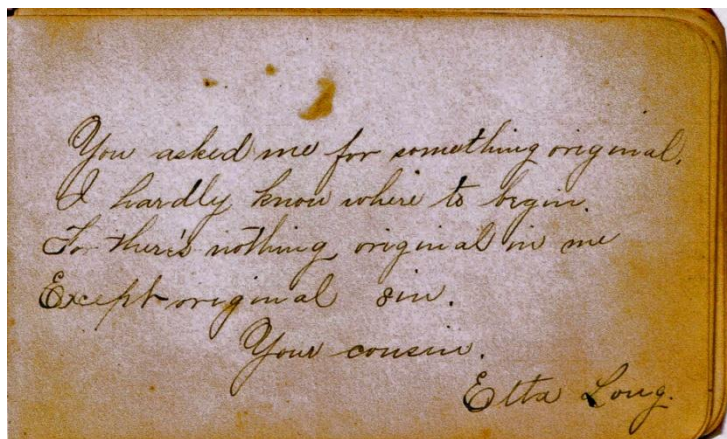 You asked me for something original.
I hardly know where to begin.
For there's nothing original in me
Except original sin.
Your cousin.
Etta Long.